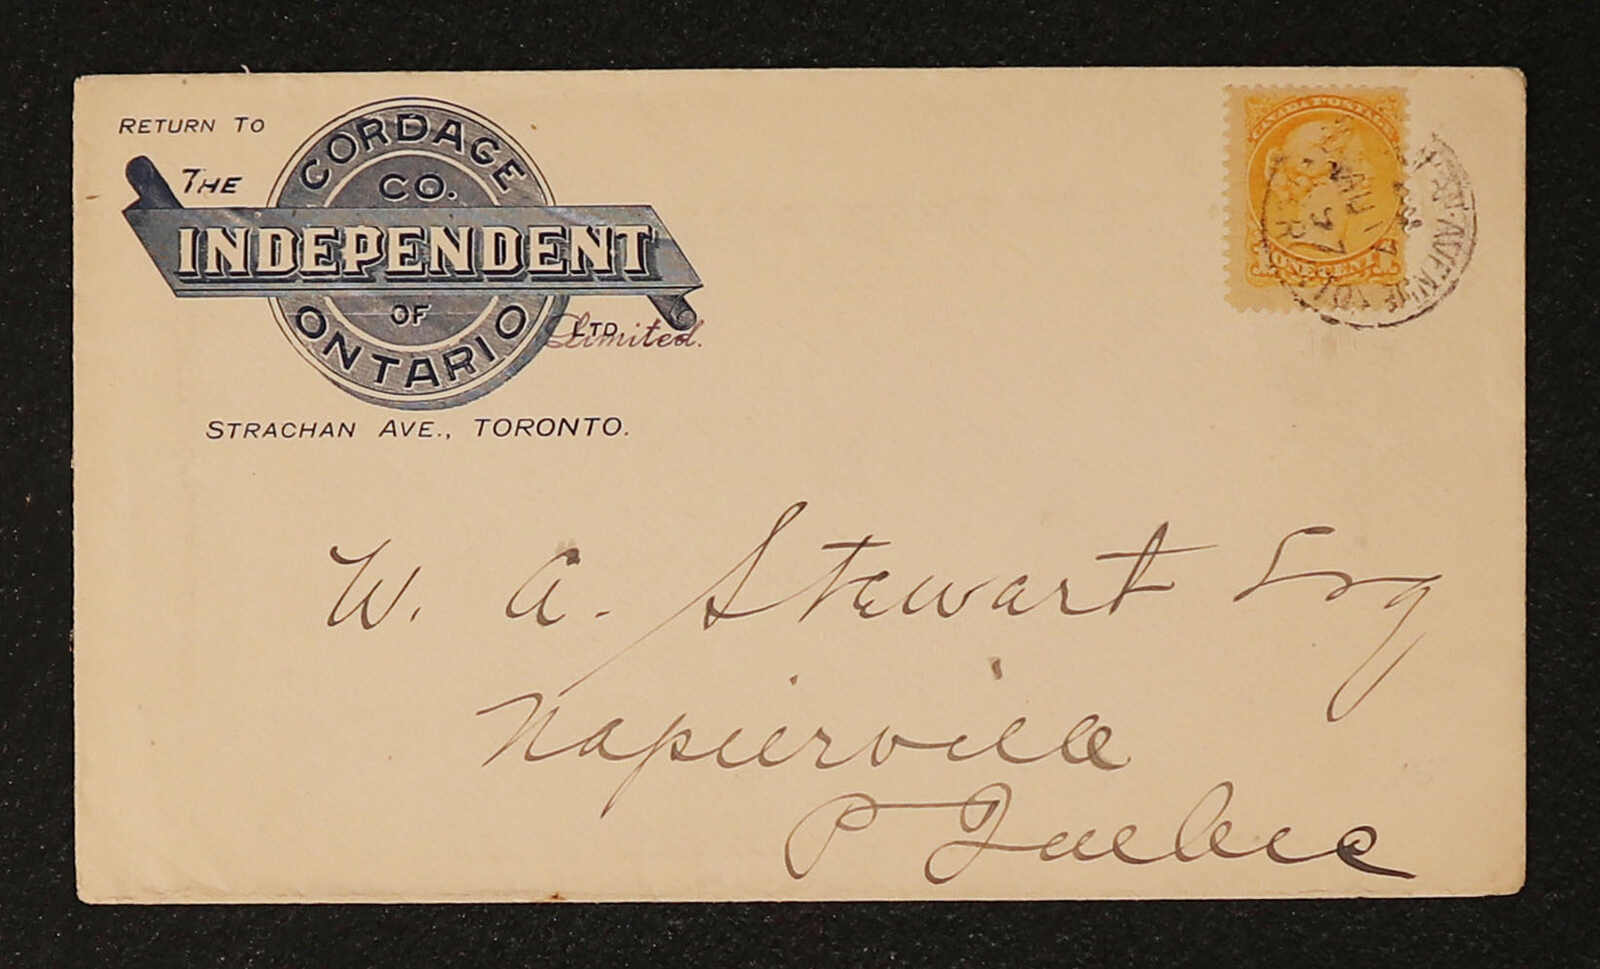 RETURN TO
THE
CORDAGE
CO.
INDEPENDENT
OF
ONTARIO
LTD.
Limited.
STRACHAN AVE., TORONTO.
CANADA POSTAGE
ONE CENT
W. A. Stewart Esq
Napierville
P Quebec